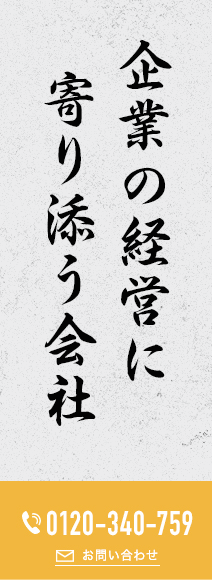 企業の経営に
寄り添う会社
0120-340-759
お問い合わせ